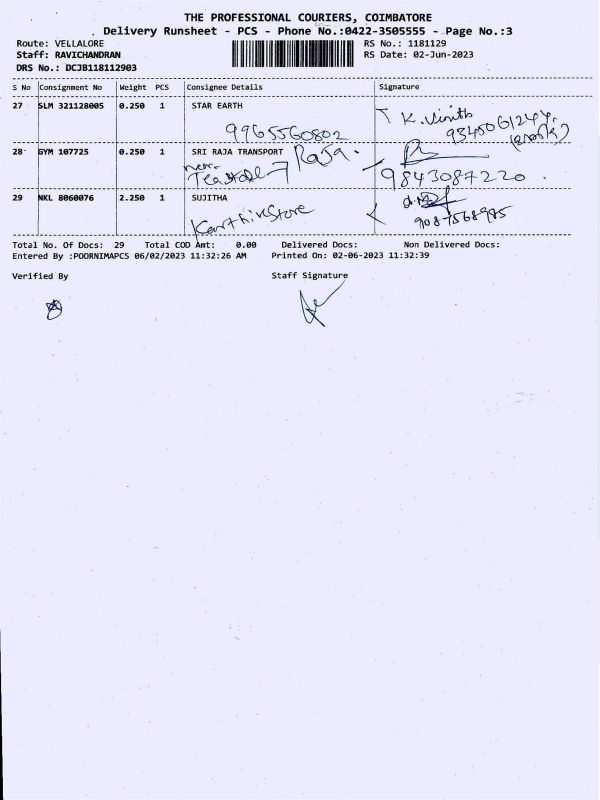 THE PROFESSIONAL COURIERS, COIMBATORE
Delivery Runsheet - PCS - Phone No.:0422-3505555 - Page No.:3
Route: VELLALORE RS No.: 1181129
Staff: RAVICHANDRAN RS Date: 02-Jun-2023
DRS No.: DCJB118112903
S No Consignment No Weight PCS Consignee Details Signature
27 SLM 321128005 0.250 1 STAR EARTH
9965560802
K. Vinith
28 GYM 107725 0.250 1 SRI RAJA TRANSPORT Raja.
near
9843087220.
29 NKL 8060076 2.250 1 SUJITHA
Karthik Store
Total No. Of Docs: 29 Total COD Amt: 0.00 Delivered Docs: Non Delivered Docs:
Entered By :POORNIMAPCS 06/02/2023 11:32:26 AM Printed On: 02-06-2023 11:32:39
Verified By Staff Signature